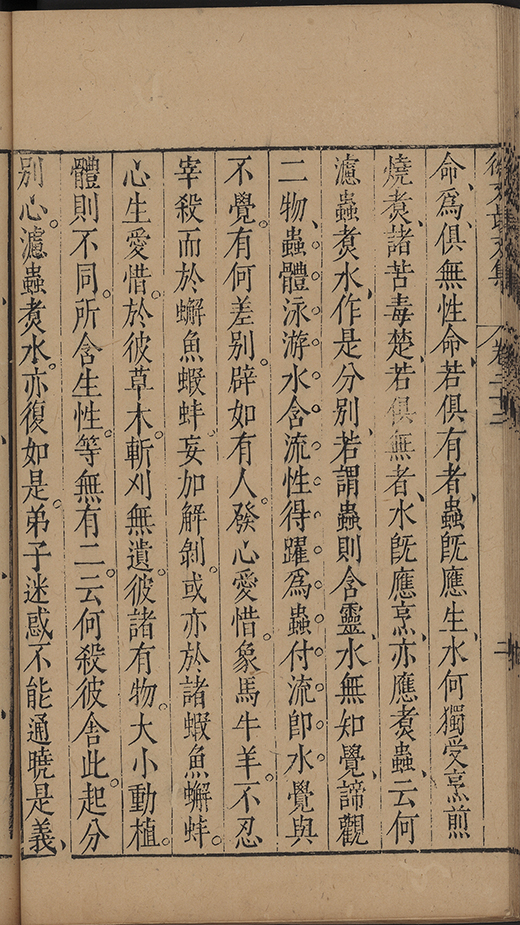 徐文長文集 卷二十二 二
命、爲俱無性命、若俱有者、蟲旣應生、水何獨受烹煎
燒煑、諸苦毒楚、若俱無者、水旣應烹、亦應煑蟲、云何
濾蟲煑水、作是分別、若謂蟲則含靈、水無知覺、諦觀
二物、蟲體泳游、水含流性、得躍爲蟲、付流卽水、覺與
不覺。有何差别。辟如有人。發心愛惜。象馬牛羊。不忍
宰殺而於蠏魚蝦蚌。妄加解剝。或亦於諸蝦魚蠏蚌。
心生愛惜。於彼草木。斬刈無遺。彼諸有物。大小動植。
體則不同。所含生性。等無有二。云何殺彼舍此。起分
别心。濾蟲煑水。亦復如是。弟子迷惑不能通曉是義、